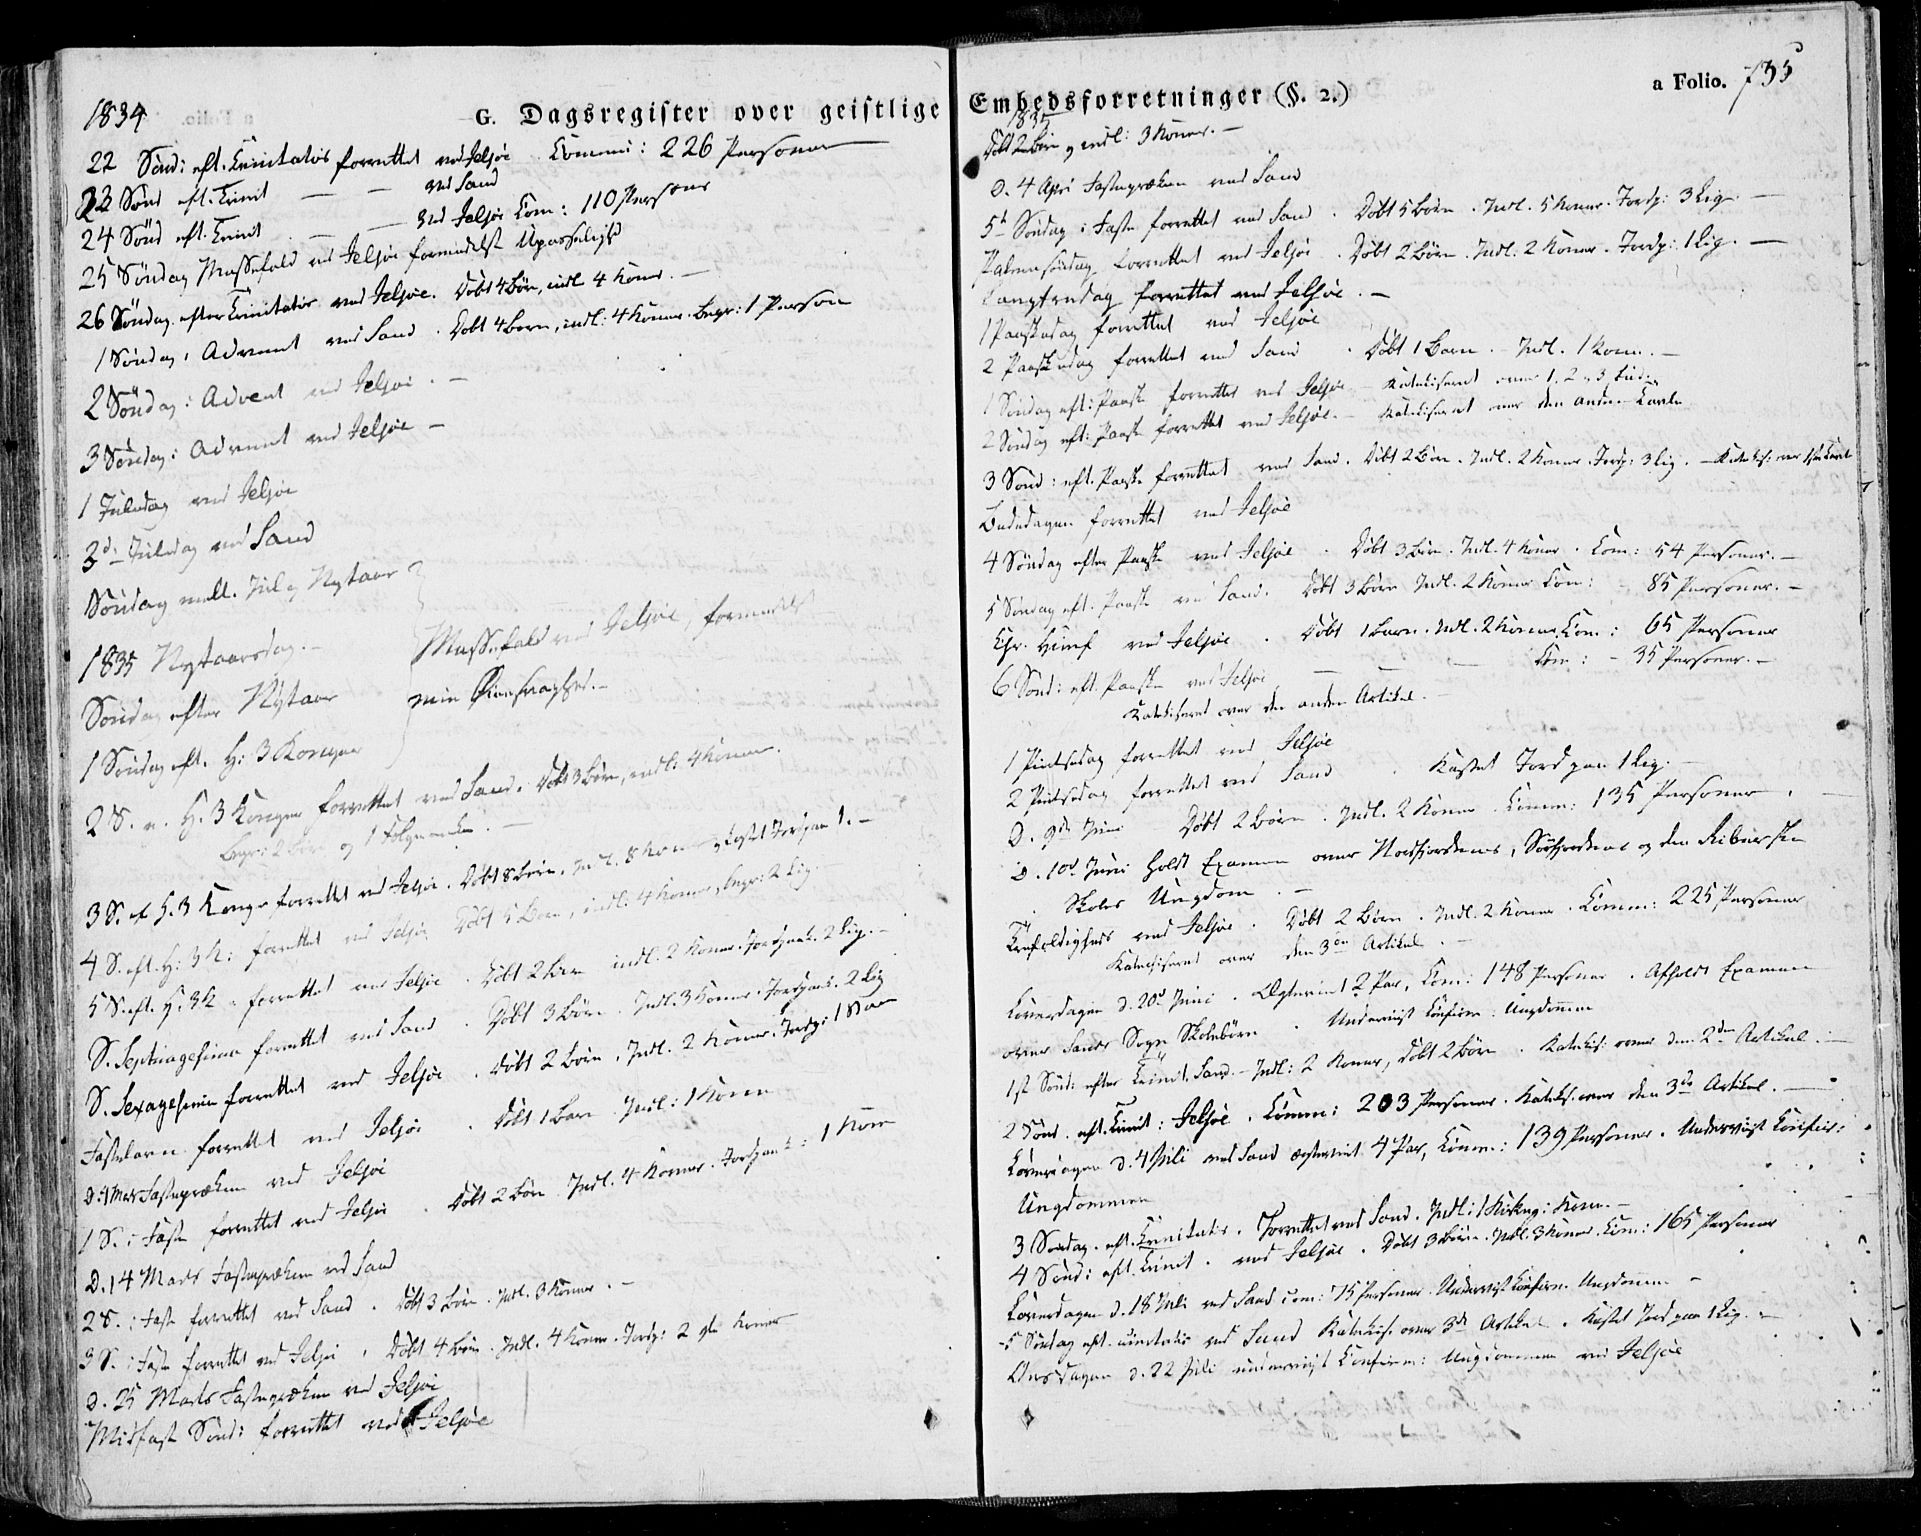 1834
G. Dagsregister over geistlige
22 Sönd: eft. Trinitatis forrettet ved Jelsöe Commu: 226 Personer
23 Sönd eft. Trinit — — ved Sand
24 Sönd eft. Trinit — — ved Jelsöe Com: 110 Personer
25 Söndag Messefald ved Jelsöe formedelst Upasselighed
26 Söndag efter Trinitatis ved Jelsöe. Döbt 4 Börn, indl. 4 Koner. —
1 Söndag i Advent ved Sand. Döbt 4 Börn, indl: 4 Koner. Begr: 1 Person
2 Söndag i Advent ved Jelsöe. —
3 Söndag i Advent ved Jelsöe —
1 Juledag ved Jelsöe
2d Juledag ved Sand
Söndag mell. Jul og Nytaar
1835 Nytaarsdag. —
Messefald ved Jelsöe, formedelst
Söndag efter Nytaar
min Öiensvaghed. —
1 Söndag eft. H: 3 Konger
2 S. e. H. 3 Konger forrettet ved Sand. Döbt 3 Börn, indl: 4 Koner.
Begr: 2 Börn og 1
3 S. ef H. 3 Konger forrettet ved Jelsöe. Döbt 8 Börn, Indl. 8 Koner, Kastet Jord paa 1. —
4 S. eft. H: 3 K: forrettet ved Jelsöe Döbt 5 Börn, indl. 4 Koner, begr: 2 Lig.
5 S. eft. H: 3 K. forrettet ved Jelsöe. Döbt 2 Börn indl. 2 Koner. Jordpaak. 2 Lig. —
S. Septuagesima forrettet ved Sand. Döbt 3 Börn. Indl. 3 Koner. Jordpaak. 2 Lig
S. Sexagesima forrettet ved Jelsöe. Döbt 2 Börn. Indl. 2 Koner. Jordp: 1
Fastelavn forrettet ved Jelsöe. Döbt 1 Barn Indl: 1 Kone
D. 4 Marts Fastepræken ved Jelsöe
1 S. i Faste forrettet ved Jelsöe. Döbt 2 Börn Indl. 4 Koner. Jordpaak: 1 Kone
D. 14 Marts Fastepræken ved Sand
2 S. i Faste forrettet ved Sand. Döbt 3 Börn. Indl. 3 Koner. —
3 S. i Faste forrettet ved Jelsöe. Döbt 4 Börn. Indl. 4 Koner. Jordp: 2 gl. Koner
D. 25 Marts Fastepræken ved Jelsöe
Midfaste Sönd: forrettet ved Jelsöe
Embedsforretninger (§. 2.)
a Folio. 735
1835
Döbt 2 Börn og indl: 3 Koner. —
D. 4 April Fasteprækен ved Sand
5t Söndag i Faste forrettet ved Sand. Döbt 5 Börn. Indl. 5 Koner. Jordp: 3 Lig. —
Palmesöndag forrettet ved Jelsöe. Döbt 2 Börn. Indl. 2 Koner. Jordp: 1 Lig. —
Langfredag forrettet ved Jelsöe. —
1 Paaskedag forrettet ved Jelsöe
2 Paaskedag forrettet ved Sand. Döbt 1 Barn. — Indl. 1 Kone. —
1 Söndag eft: Paaske forrettet ved Jelsöe — Katekiseret over 1, 2 og 3 Bud.
2 Söndag eft: Paaske forrettet ved Jelsöe. — Katekiseret over den anden Tavle
3 Sönd: eft. Paaske forrettet ved Sand. Döbt 2 Börn. Indl. 2 Koner. Jordp: 3 Lig. — Katekis: over
Bededagen forrettet ved Jelsöe
4 Söndag efter Paaske ved Jelsöe. Döbt 3 Börn. Indl. 4 Koner. Com: 54 Personer. —
5 Söndag eft. Paaske ved Sand. Döbt 3 Börn Indl. 2 Koner Com: 85 Personer. —
Chr. Himf ved Jelsöe. Döbt 1 Barn. Indl. 2 Koner Com: 65 Personer
6 Sönd: eft. Paaske ved Jelsöe — — — Com: - 35 Personer. —
Katekiseret over den anden Artikel. —
1 Pintsedag forrettet ved Jelsöe
2 Pintsedag forrettet ved Sand. Kastet Jord paa 1 Lig. —
D. 9de Juni Döbt 2 Börn. Indl. 2 Koner Comm: 135 Personer. —
D. 10d Juni holdt Examen over Nordfjordens, Sörfjordens og den
Skoles Ungdom. —
Trefoldigheds ved Jelsöe. Döbt 2 Börn. Indl. 2 Koner. Comm: 225 Personer
Katekiseret over den 3die Artikel. —
Löverdagen d. 20d Juni. Ægteviet 2 Par, Com: 148 Personer. Afholdt Examen
over Sands Sogns Skolebörn. Underviist Confirm: Ungdommen
1st Sönd: efter Trinit. Sand. — Indl: 2 Koner, Döbt 2 Börn. Katekis: over den 2den Artikel. —
2 Sönd. eft. Trinit: Jelsöe. Comm: 203 Personer. Kateks. over den 3die Artikel. —
Löverdagen d. 4 Juli ved Sand ægteviet 4 Par, Comm: 139 Personer. Underviist Confir:
Ungdommen
3 Söndag. eft. Trinitatis. Forrettet ved Sand. Indl: 1 Kone. —
4 Sönd: eft. Trinit. ved Jelsöe. Döbt 3 Börn. Indl. 3 Koner. Com: 165 Personer
Löverdagen d. 18 Juli ved Sand com: 75 Personer. Underviist Confirm. Ungdommen —
5 Söndag eft. Trinitatis ved Sand Katekis. over 3d Artikel. Kastet Jord paa 1 Lig. —
Onsdagen d. 22 Juli underviist Confirm: Ungdommen ved Jelsöe